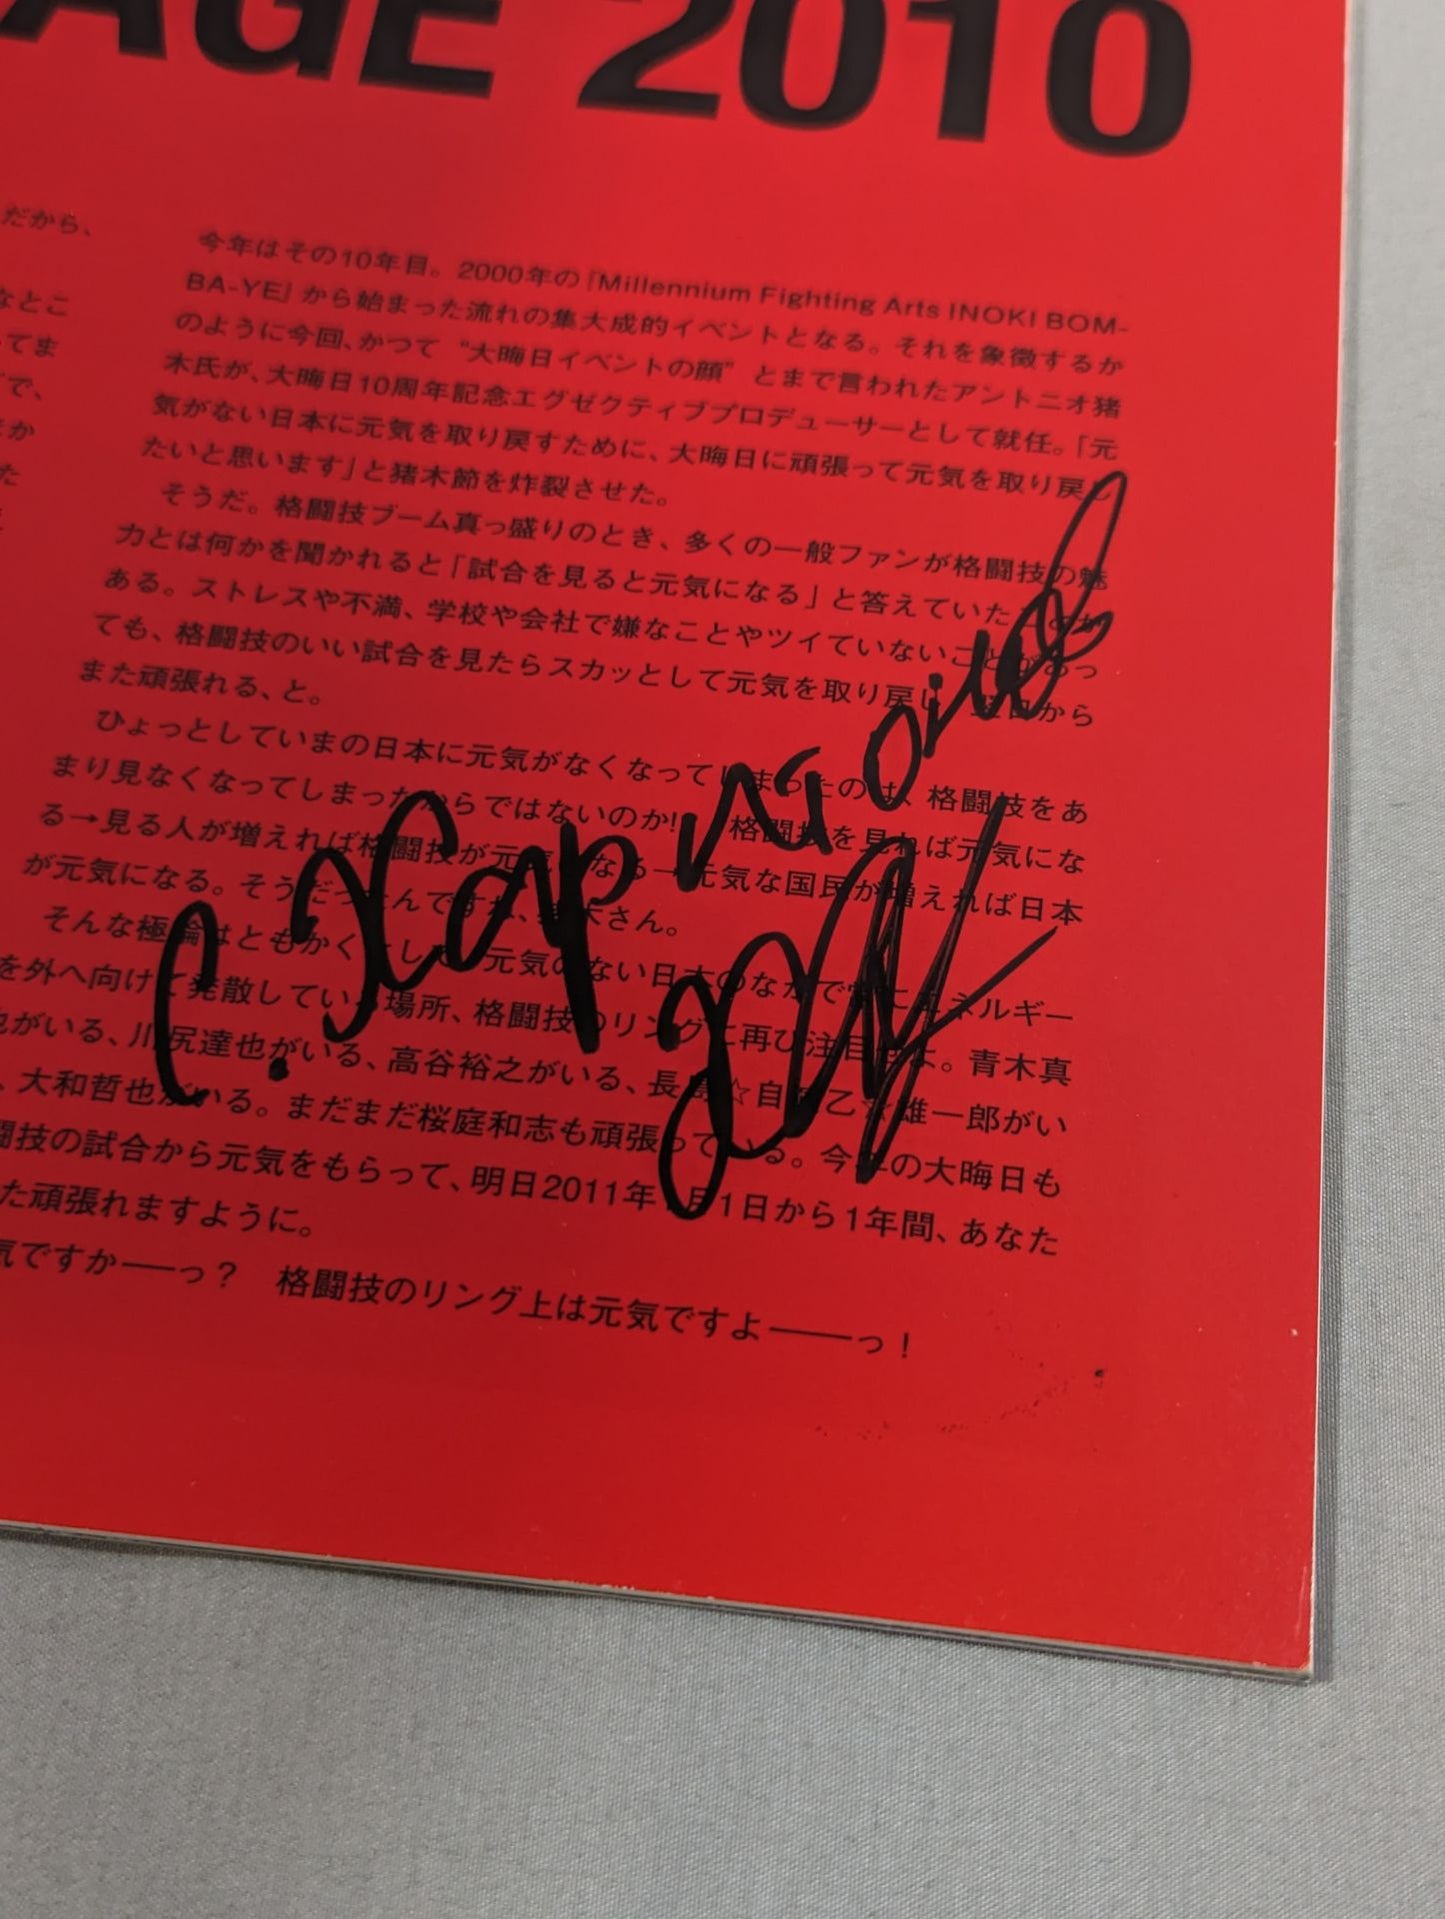 AGE 2010
だから、
なとこ
てま
で、
か
た
今年はその10年目。2000年の『Millennium Fighting Arts INOKI BOM-
BA-YE』から始まった流れの集大成的イベントとなる。それを象徴するか
のように今回、かつて“大晦日イベントの顔”とまで言われたアントニオ猪
木氏が、大晦日10周年記念エグゼクティブプロデューサーとして就任。「元
気がない日本に元気を取り戻すために、大晦日に頑張って元気を取り戻し
たいと思います」と猪木節を炸裂させた。
そうだ。格闘技ブーム真っ盛りのとき、多くの一般ファンが格闘技の魅
力とは何かを聞かれると「試合を見ると元気になる」と答えていた
ある。ストレスや不満、学校や会社で嫌なことやツイていないことがあっ
ても、格闘技のいい試合を見たらスカッとして元気を取り戻し、翌日から
また頑張れる、と。
ひょっとしていまの日本に元気がなくなってしまったのは、格闘技をあ
まり見なくなってしまったからではないのか!? 格闘技を見れば元気にな
る→見る人が増えれば格闘技が元気になる→元気な国民が増えれば日本
が元気になる。そうだったんですね、猪木さん。
そんな極論はともかくとしても、元気のない日本のなかで常にエネルギー
を外へ向けて発散している場所、格闘技のリングに再び注目せよ。青木真
也がいる、川尻達也がいる、高谷裕之がいる、長島☆自演乙☆雄一郎がい
、大和哲也がいる。まだまだ桜庭和志も頑張っている。今年の大晦日も
闘技の試合から元気をもらって、明日2011年1月1日から1年間、あなた
た頑張れますように。
気ですか――っ？ 格闘技のリング上は元気ですよ――っ！